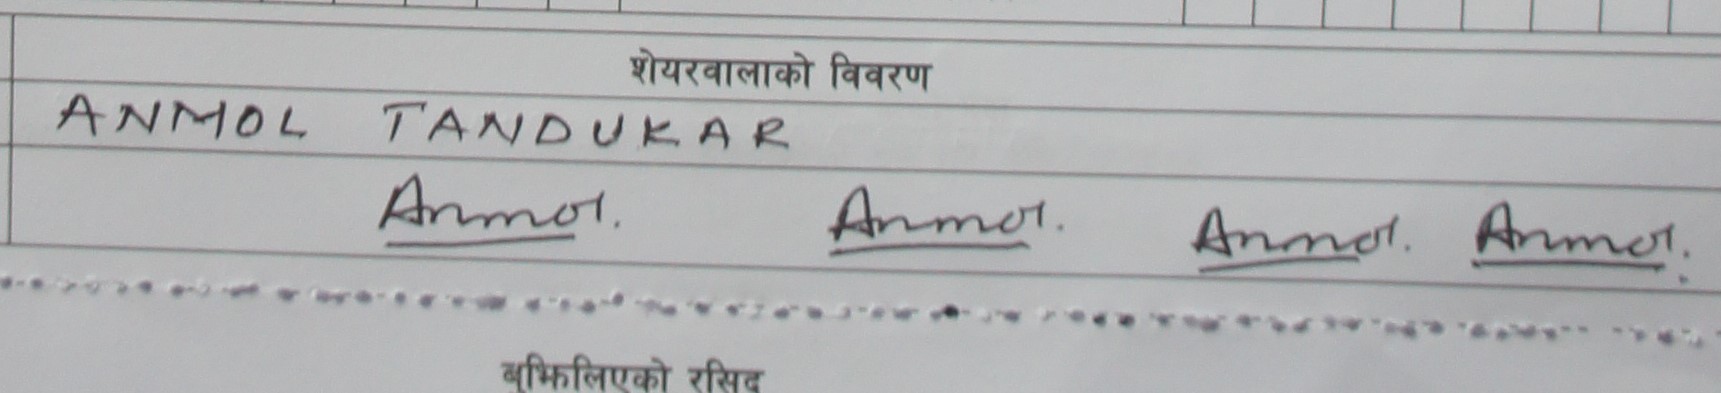 शेयरवालाको विवरण
ANMOL TANDUKAR
Anmol. Anmol. Anmol. Anmol.
बुझिलिएको रसिद